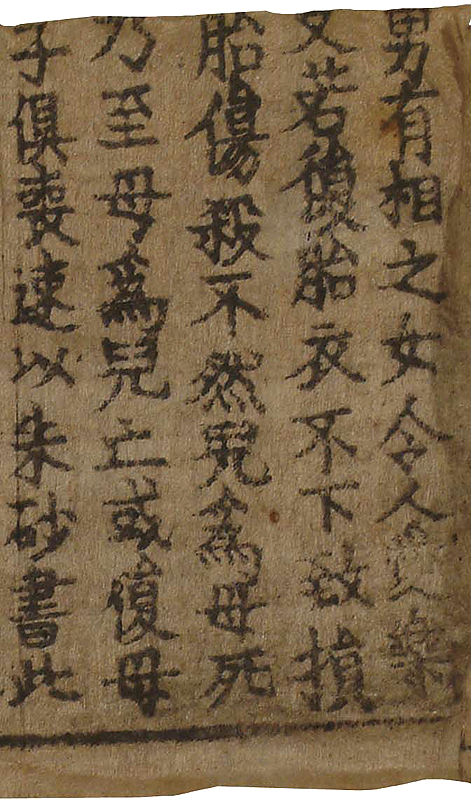 男有相之女令人愛樂
又若復胎衣不下致損
胎傷殺不然兒為母死
乃至母為兒亡或復母
子俱喪速以朱砂書此